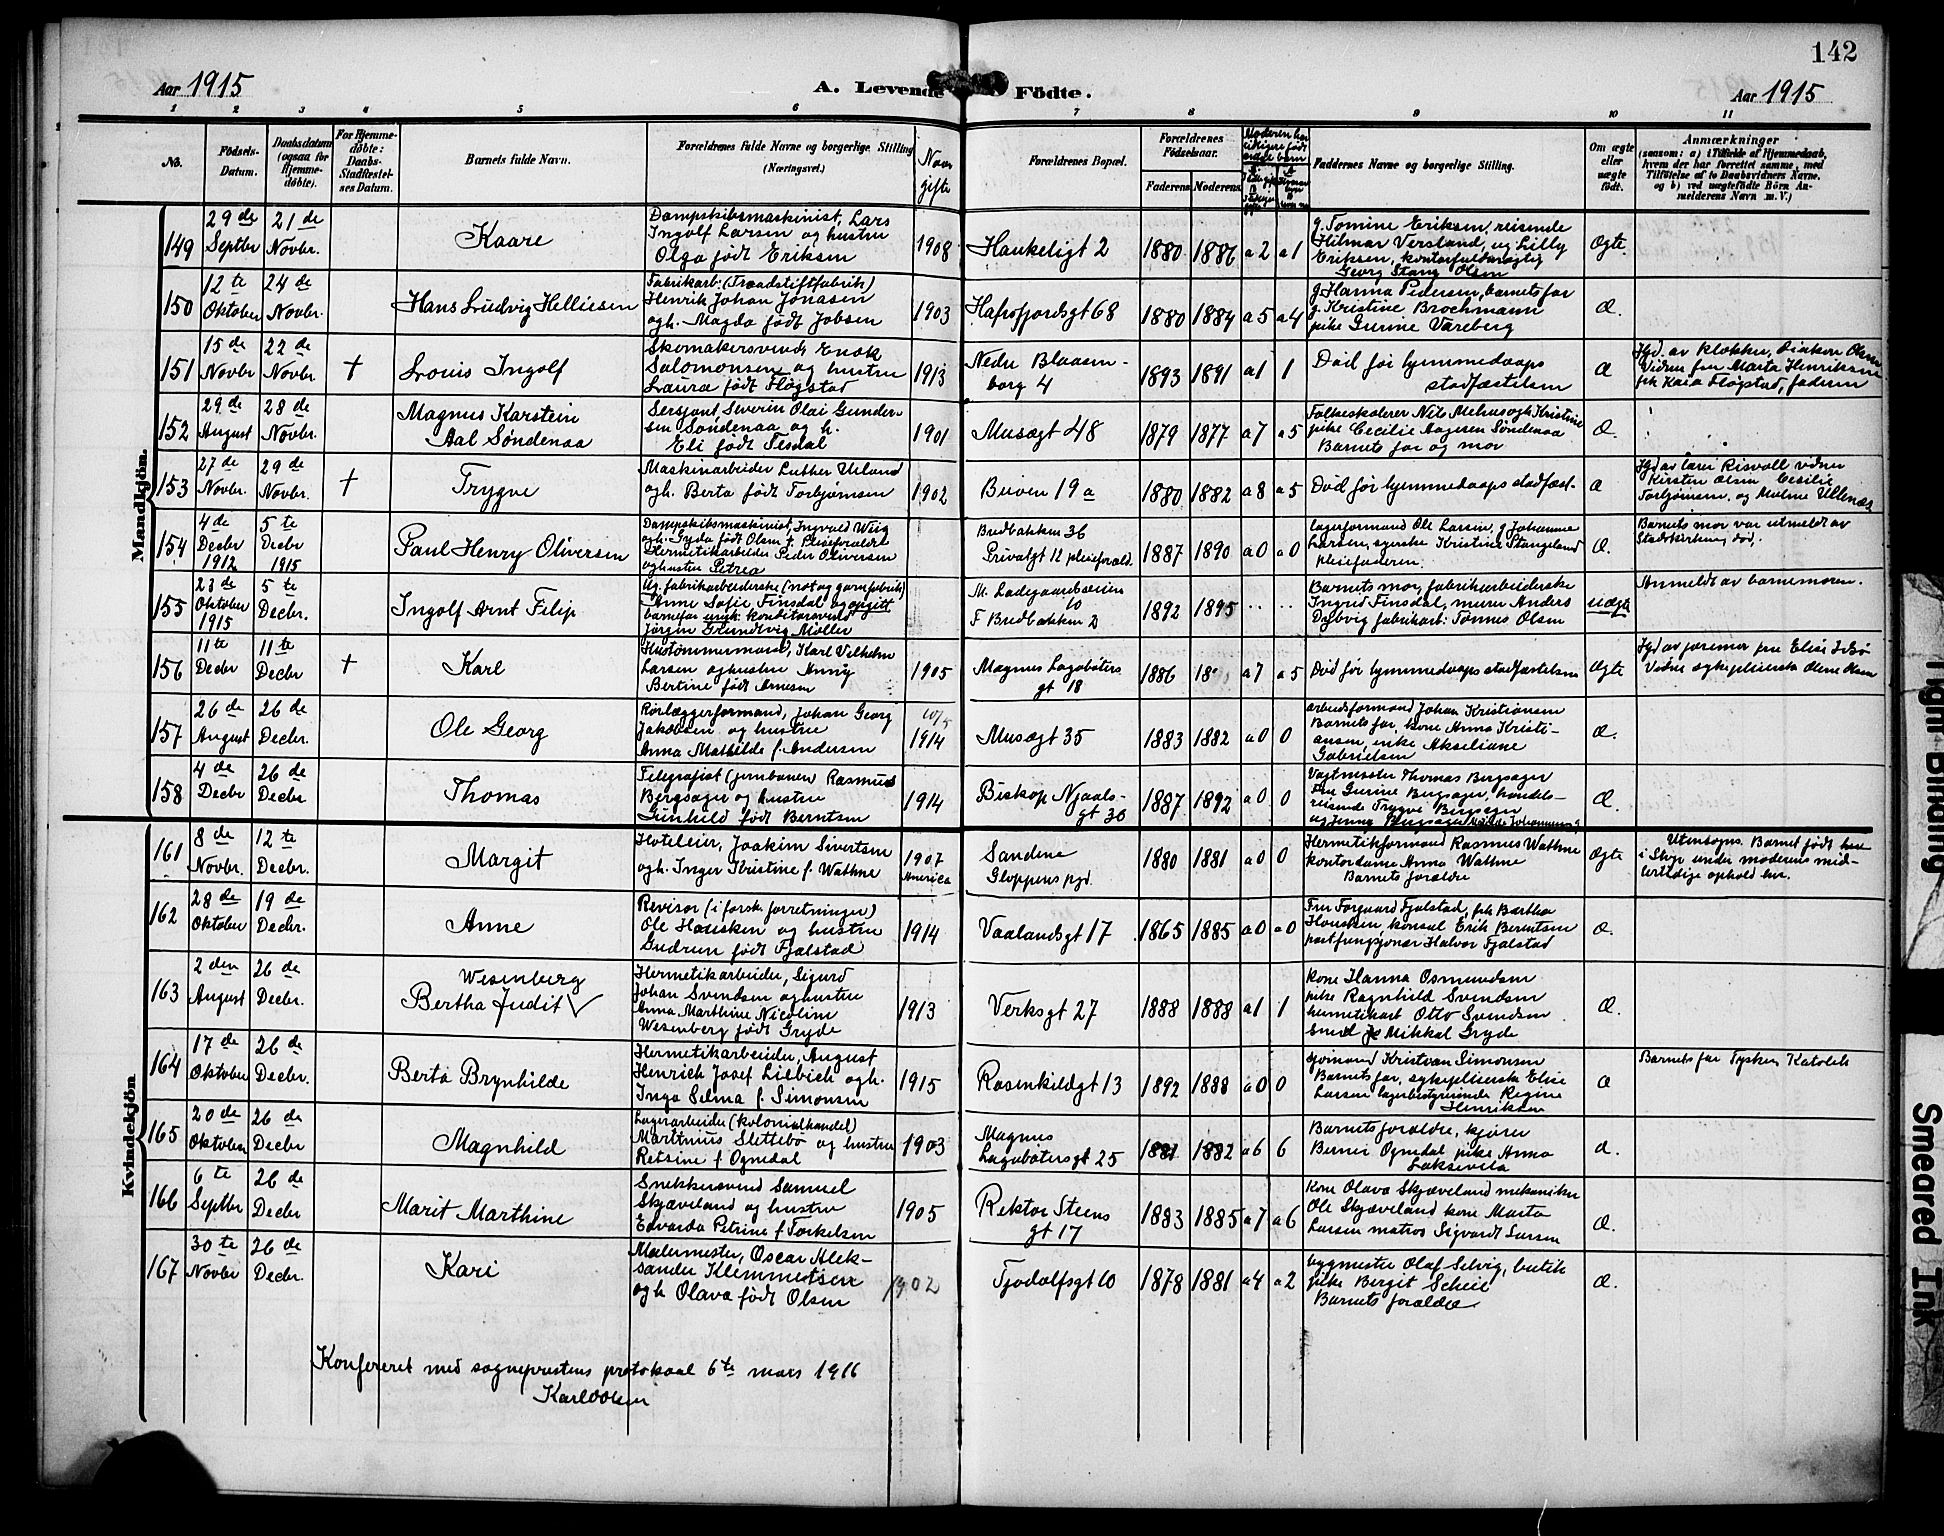 142
Aar 1915
A. Levende Födte.
Aar 1915
1 2 3 4 5 6 7 8 9 10 11
No.
Födsels-
Datum.
Daabsdatum
(ogsaa for
Hjemme-
döbte).
For Hjemme-
döbte:
Daabs-
Stadfæstel-
ses Datum.
Barnets fulde Navn.
Forældrenes fulde Navne og borgerlige Stilling
(Næringsvei).
Naar
gifte
Forældrenes Bopæl.
Forældrenes
Födselsaar.
Faderens
Moderens
Faddernes Navne og borgerlige Stilling.
Om ægte
eller
uægte
födt.
Anmærkninger
(saasom: a) i Tilfælde af Hjemmedaab,
hvem der har forrettet samme, med
Tilföielse af to Daabsvidners Navne,
og b) ved uægtefödte Börn An-
melderens Navn m. V.)
Mandkjön.
149
29 de
Septbr
21 de
Novbr.
Kaare
Dampskibsmaskinist, Lars
Ingolf Larsen og hustru
Olga født Eriksen
1908
Haukeligt 2
1880
1886
a 2
a 1
g. Tomine Eriksen, reisende
Hilmar Versland, ug Lilly
Eriksen, kontorfuldmægtig
Georg Stang Olsen
Ægte.
150
12 te
Oktober
24 de
Novbr.
Hans Ludvig Helliesen
Fabrikarb: (Traadstiftfabrik)
Henrik Johan Jonasen
og h. Magda født Jobsen
1903
Hafrsfjordsgt 68
1880
1884
a 5
a 4
g. Hanna Pedersen, barnets far
g. Kristine Brochmann
pike Gurine Vareberg
Æ.
151
15 de
Novbr
22 de
Novbr
†
Louis Ingolf
Skomakersvend, Enok
Salomonsen og hustru
Laura født Fløgstad
1913
Nedre Blaasen-
borg 4
1893
1891
a 1
1
Død før hjemmedaaps
stadfæstelsen
Æ
Hjd. av klokker, Diakon Olsen
Vidner fru Marta Henriksen
frk Kaia Fløgstad, faderen
152
29 de
August
28 de
Novbr.
Magnus Karstein
Aal Søndenaa
Sersjant Severin Olai Gunder-
sen Søndenaa og h.
Eli født Tesdal
1901
Musægt 48
1879
1877
a 7
a 5
Folkeskolerer Nils Melhus og h Kristine
pike Cecilie Aagesen Søndenaa
Barnets far og mor
Æ.
153
27 de
Novbr.
29 de
Novbr.
†
Trygve
Maskinarbeider Luther Ueland
og h. Berta født Torbjørnsen
1902
Bersen 19 a
1880
1882
a 8
a 5
Død før hjemmedaaps stadfæst-
Æ
Hjd av lærer Risvoll vidner
Kirsten Olsen Cecilie
Torbjørnsen, og Malene Ullenæs
154
4 de
Decbr
1912
5 te
Decbr
1915
Paul Henry Oliversen
Dampskibsmaskinist, Ingvald Weig
og h. Gyda født Olsen †. Pleieforældre
Hermetikarbeider Peder Oliversen
og hustru Petrea
Bredbakken 36
Privatgt 12 pleieforæld.
1887
1890
a 0
a 0
Lagerformand Ole Larsen, g. Johanne
Larsen, syerske Kristine Stangeland
pleiefaderen.
Æ.
Barnets mor var utmeldt av
Statskirken, død.
155
23 de
Oktober
1915
5 te
Decbr.
Ingolf Arnt Filip
Ug. fabrikarbeiderske (not og garnfabrik)
Anne Sofie Finsdal og opgitt
barnefar ungk: konditorsvend
Jørgen Grundtvig Møller
M. Ladegaardsveien
10
F Bredbakken 2
1892
1895
Barnets mor, fabrikarbeiderske
Ingrid Finsdal, murer Anders
Dybvig fabrikarb: Tønnes Olsen
uægte
Anmeldt av barnemoren.
156
11 te
Decbr
11 te
Decbr.
†
Karl
Hustømmermand, Karl Vilhelm
Larsen og hustru Anny
Bertine født Arnesen
1905
Magnus Lagabøters
gt 18
1886
a 7
a 5
Død før hjemmedaaps stadfæstelsen
Ægte
Hjd av jordmor fru Elise Isbø
Vidne sykepleierske Olene Olsen
157
26 de
August
26 de
Decbr.
Ole Georg
Rørlæggerformand, Johan Georg
Jakobsen og hustru
Anna Mathilde f. Andersen
10/5
1914
Musægt 35
1883
1882
a 0
0
arbeidsformand Johan Kristiansen
Barnets far, kone Anna Kristi-
ansen, enke Akseliane
Gabrielsen
Æ.
158
4 de
Decbr
26 de
Decbr
Thomas
Telegrafist (jernbanen) Rasmus
Bergsager og hustru
Gunhild født Berntsen
1914
Biskop Njaals-
gt 30
1887
1892
a 0
0
Vagtmester Thomas Bergsager
Fru Gurine Bergsager, handels-
reisende Trygve Bergsager
og Jenny Bergsager
Æ.
Kvindekjön
161
8 de
Novbr.
12 te
Decbr.
Margit
Hoteleier, Joakim Sivertsen
og h. Inger Kristine f. Wathne
1907
America
Sandene
Gloppens pgd.
1880
1881
a 0
0
Hermetikformand Rasmus Wathne
kontordame Anna Wathne
Barnets forældre
Ægte
Utensogns. Barnet født her
i Stvgr under moderens mid-
lertidige ophold her.
162
28 de
Oktober
19 de
Decbr.
Anne
Revisor (i forsk. forretninger)
Ole Hausken og hustru
Gudrun født Fjalstad
1914
Vaalandsgt 17
1865
1885
a 0
a 0
Fru Torgaard Fjalstad, frk Bertha
Hausken, konsul Erik Berentsen
postfungsjonær Halvor Fjalstad
Æ.
163
2 den
August
26 de
Decbr.
Wesenberg
Bertha Judit √
Hermetikarbeider, Sigurd
Johan Svendsen og hustru
Anna Marthine Nicoline
Wesenberg født Gryde
1913
Verksgt 27
1888
1888
a 1
1
kone Hanna Osmundsen
pike Ragnhild Svendsen
hermetikarb Otto Svendsen
smed Mikkal Gryde
Æ.
164
17 de
Oktober
26 de
Decbr.
Berta Brynhilde
Hermetikarbeider, August
Henrich Josef Liebich og h.
Inga Selma f. Simonsen
1915
Rosenkildgt 13
1892
1888
a 0
0
sjømand Kristian Simonsen
Barnets far, sykepleierske Elise
Larsen lagerbestyrerinde Regine
Henriksen
Æ
Barnets far Tysker, Katolik
165
20 de
Oktober
26 de
Decbr
Magnhild
Lagerarbeider (kolonialhandel)
Martinius Slettebø og hustru
Retsine f Ognedal
1903
Magnus
Lagabøtersgt 25
1881
1882
a 6
6
Barnets forældre, kjører
Berner Ognedal pike Anna
Laksevela
Æ.
166
6 te
Septbr
26 de
Decbr
Marit Marthine
Snekkersvend Samuel
Skjæveland og hustru
Edvarda Petrine f Torkelsen
1905
Rektor Steens
gt 17
1883
1885
a 7
a 6
kone Olava Skjæveland mekaniker
Ole Skjæveland kone Marta
Larsen matros Sigvardt Larsen
Æ.
167
30 te
Novbr
26 de
Decbr.
Kari
Malermester, Oscar Alek-
sander Klemmetsen
og h Olava født Olsen
1902
Tjodolfsgt 10
1878
1881
a 4
a 2
bygmester Olaf Selvig, butik
pike Bergit Scheie
Barnets forældre
Æ.
Konfereret med sogneprestens protokoal 6te mars 1916
Karl O Olsen
Tight Binding
Smeared Ink